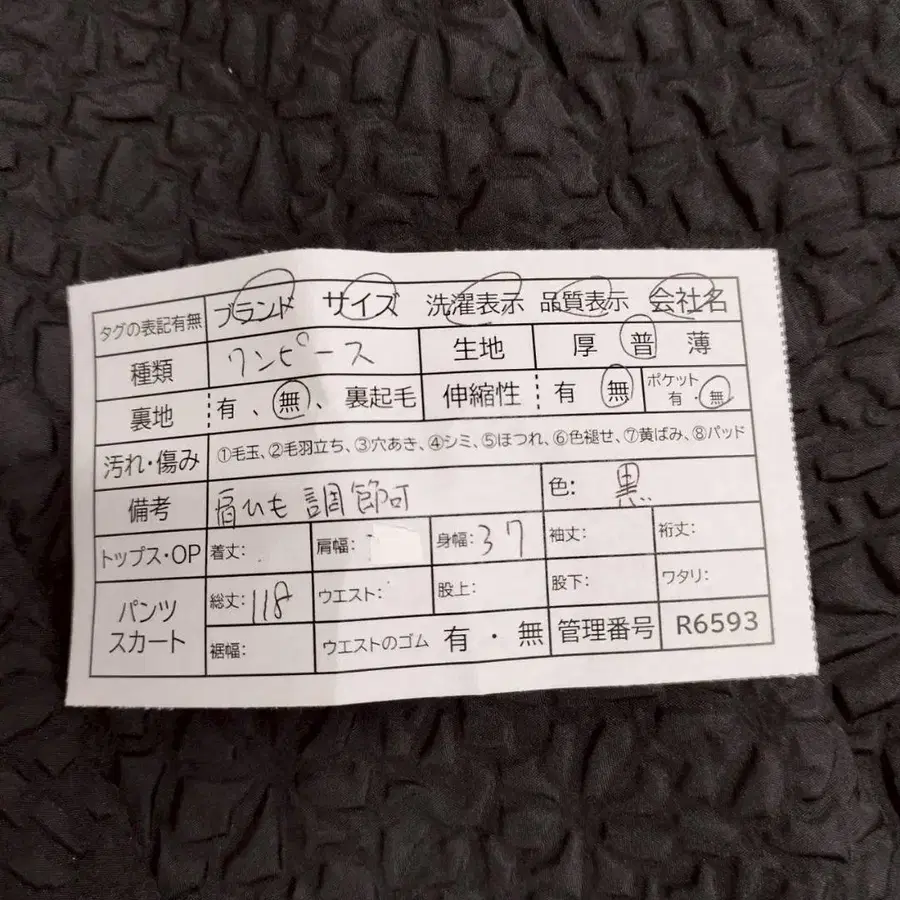 タグの表記有無 ブランド サイズ 洗濯表示 品質表示 会社名
種類 ワンピース 生地 厚 普 薄
裏地 有、無、裏起毛 伸縮性 有 無 ポケット 有・無
汚れ・傷み ①毛玉、②毛羽立ち、③穴あき、④シミ、⑤ほつれ、⑥色褪せ、⑦黄ばみ、⑧パッド
備考 肩ひも調節可 色: 黒
トップス・OP 着丈: 肩幅: 身幅: 37 袖丈: 裄丈:
パンツ スカート 総丈: 118 ウエスト: 股上: 股下: ワタリ:
裾幅: ウエストのゴム 有・無 管理番号 R6593